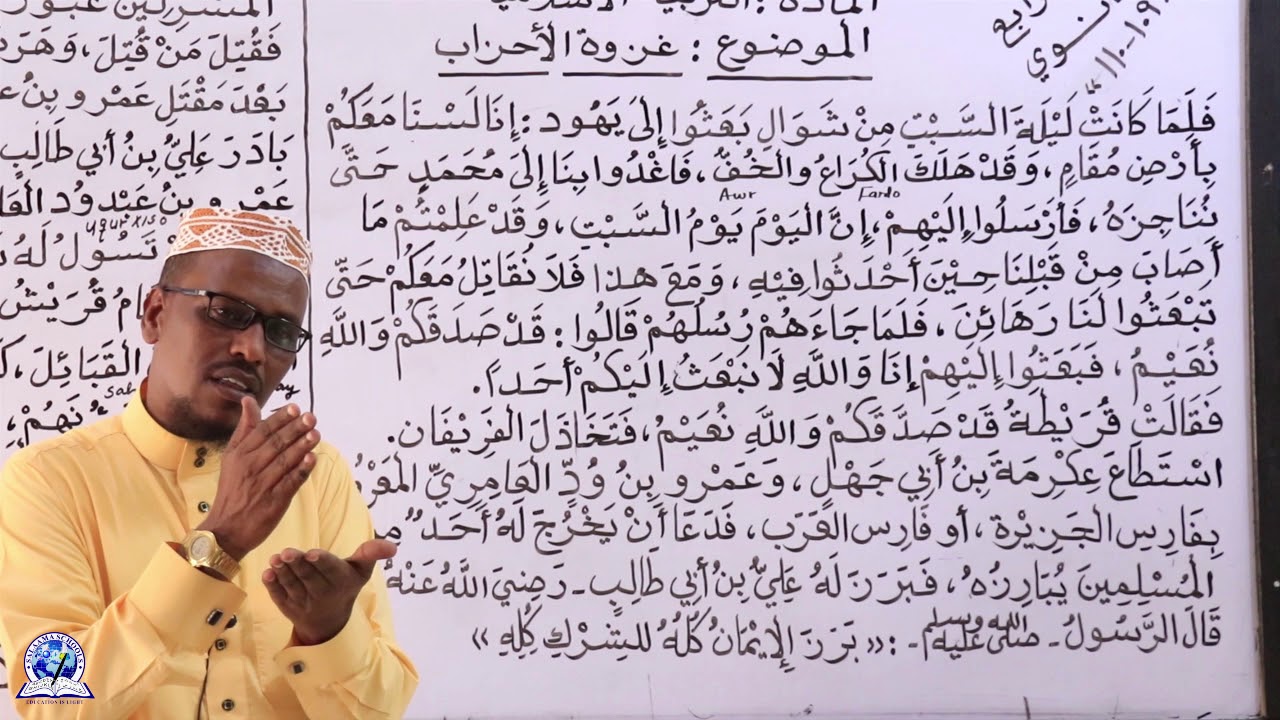 المادة : التربية الإسلامية
الموضوع : غزوة الأحزاب
رابع
ثانوي
١٠٩-١١٠
فَلَمَّا كَانَتْ لَيْلَةَ السَّبْتِ مِنْ شَوَالِ بَعَثُوا إِلَى يَهُود : إِنَّا لَسْنَا مَعَكُمْ
بِأَرْضِ مُقَامٍ ، وَقَدْ هَلَكَ الْكُرَاعُ والْخُفُّ ، فَاغْدُوا بِنَا إِلَى مُحَمَدٍ حَتَّى
Awr Fardo
نُنَاجِزَهُ ، فَأَرْسَلُوا إِلَيْهِمْ ، إِنَّ الْيَوْمَ يَوْمُ السَّبْتِ ، وَقَدْ عَلِمْتُمْ مَا
أَصَابَ مِنْ قَبْلِنَا حِيْنَ أَحْدَثُوا فِيْهِ ، وَمَعَ هٰذا فَلَا نُقَاتِلُ مَعَكُمْ حَتّى
تَبْعَثُوا لَنَا رَهَائِنَ ، فَلَمَا جَاءَهُمْ رُسُلُهُمْ قَالُوا : قَدْ صَدَقَكُمْ وَاللَّهِ
نُعَيْمُ ، فَبَعَثُوا إِلَيْهِمْ إِنَّا وَاللَّهِ لَا نَبْعَثُ إِلَيْكُمْ أَحَداً .
فَقَالَتْ قُرَيْظَةُ قَدْ صَدَّقَكُمْ وَاللَّهِ نُعَيْمُ ، فَتَخَاذَلَ الْفَرِيْقَان .
اسْتَطَاعَ عِكْرِمَةَ بِنُ أَبِي جَهْلٍ ، وَعَمْرو بِنُ وُدِّ الْعَامِرِيِّ
بِفَارِسِ الْجَزِيْرة ، أو فَارِس الْعَرَب ، فَدَعَا أَنْ يَخْرُجَ لَهُ أَحَدٌ
الْمُسْلِمِينَ يُبَارِزُهُ ، فَبَرَزَ لَهُ عَلِيُّ بِنُ أَبِي طَالِبٍ - رَضِيَ اللَّهُ عَنْهُ
قَالَ الرَّسُولُ - صلى الله عليه وسلم - : « بَرَزَ الإِيْمَانُ كُلُّهُ لِلشِرْكِ كُلِّهِ »
فَقُتِلَ مَنْ قُتِلَ ،
بَعْدَ مَقْتَلِ عَمْرو بِنُ
بَادَرَ عَلِيُّ بِنُ أَبي طَالِبٍ
عَمْرو بِنُ عَبْدِ وُد
قُرَيْشُ
الْقَبَائِلَ ،
SALLAMA SCHOOLS
EDUCATION IS LIGHT